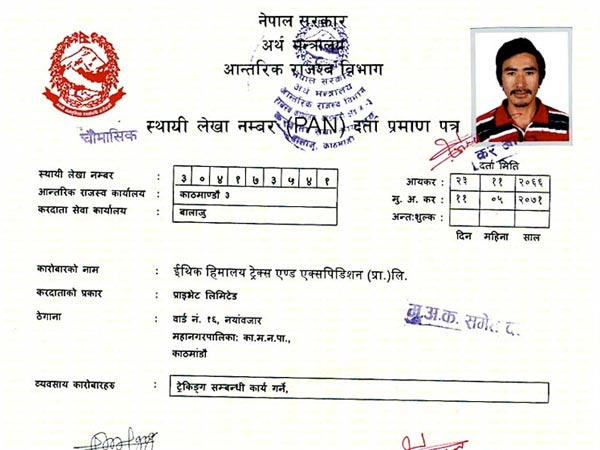 नेपाल सरकार
अर्थ मन्त्रालय
आन्तरिक राजश्व विभाग
चौमासिक
स्थायी लेखा नम्बर (PAN) दर्ता प्रमाण पत्र
स्थायी लेखा नम्बर : ३ ० ४ १ ७ ३ ५ ४ १
आन्तरिक राजस्व कार्यालय : काठमाण्डौ ३
करदाता सेवा कार्यालय : बालाजु
दर्ता मिति
आयकर : २३ ११ २०६६
मु. अ. कर : ११ ०५ २०७१
अन्तःशुल्क :
दिन महिना साल
कारोबारको नाम : ईथिक हिमालय ट्रेक्स एण्ड एक्सपिडिशन (प्रा.)लि.
करदाताको प्रकार : प्राइभेट लिमिटेड
ठेगाना : वार्ड नं. १६, नयांवजार
महानगरपालिका: का.म.न.पा.,
काठमांडौ
मू.अ.क. समेत द.
व्यवसाय कारोबारहरु : ट्रेकिङ्ग सम्बन्धी कार्य गर्ने,